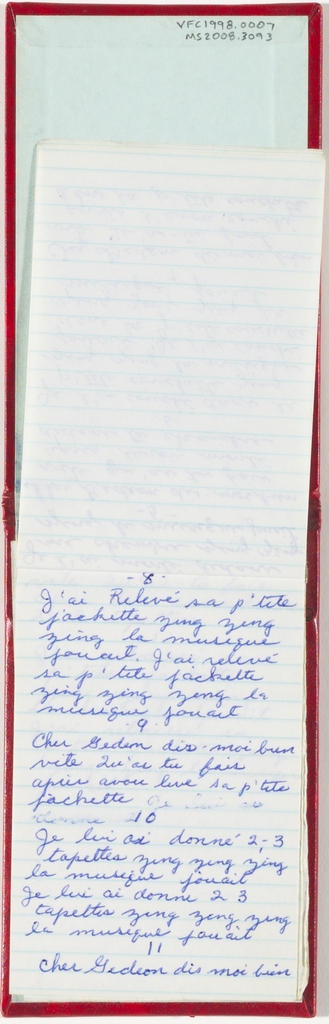 VFC1998.0007
MS2008.3093
- 8 -
J'ai Relevé sa p'tite
jackette zing zeng
zing la musique
jouait. J'ai relevé
sa p'tite jackette
zing zing zeng la
musique jouait
9
Cher Gedeon dis-moi bien
vite Qu'as tu fais
après avoir levé sa p'tite
jackette
donné 10
Je lui ai donné 2-3
tapettes zing zing zing
la musique jouait
Je lui ai donné 2 3
tapettes zing zeng zeng
la musique jouait
11
Cher Gedeon dis moi bien